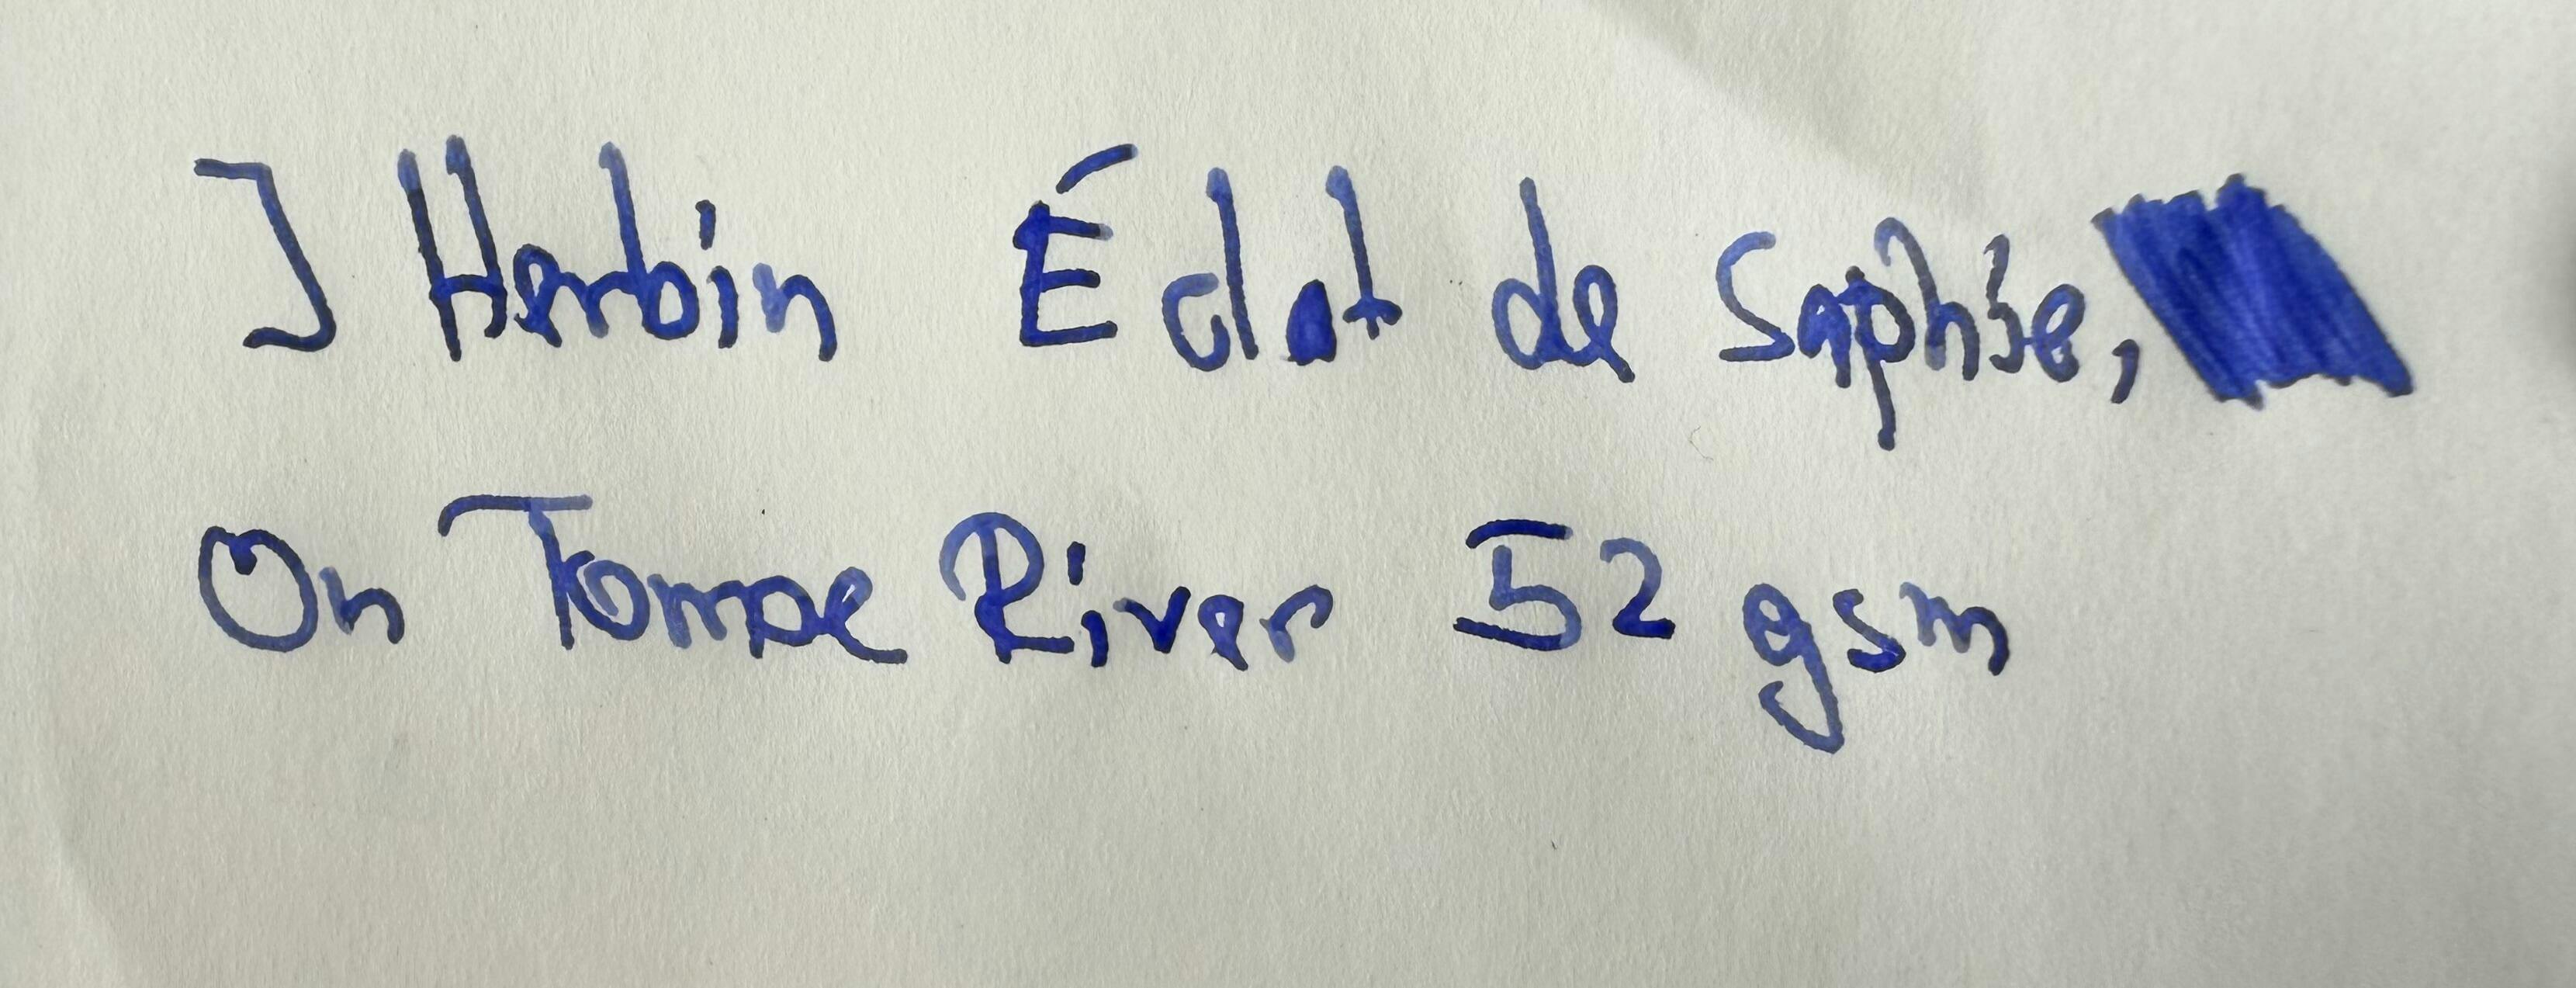 J Herbin Éclat de Saphie,
On Tomoe River 52 gsm